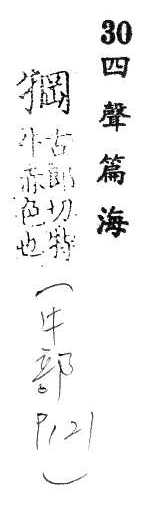 30 四聲篇海
犅 古郎切特
牛赤色也
(牛部。P121)